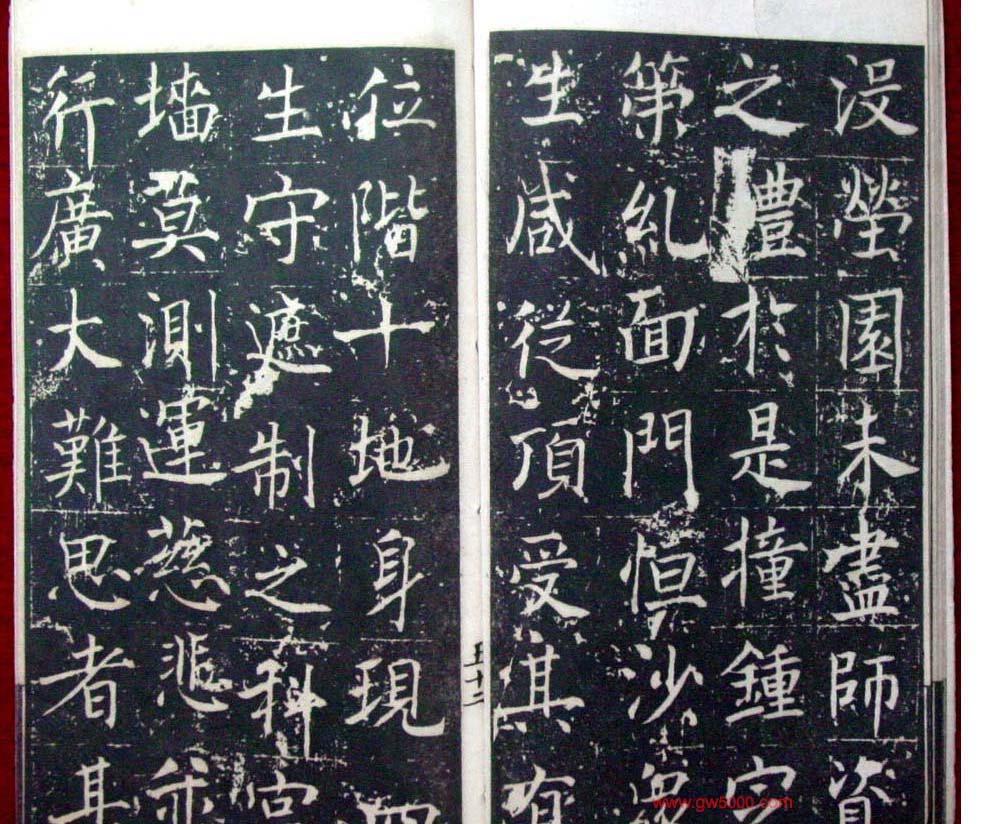 沒塋園未盡師資
之禮於是撞鍾
第糺面門恒沙眾
生咸從頂受其有
位階十地身現四
生守遮制之科
墻莫測運慈悲
行廣大難思者其
www.gw5000.com